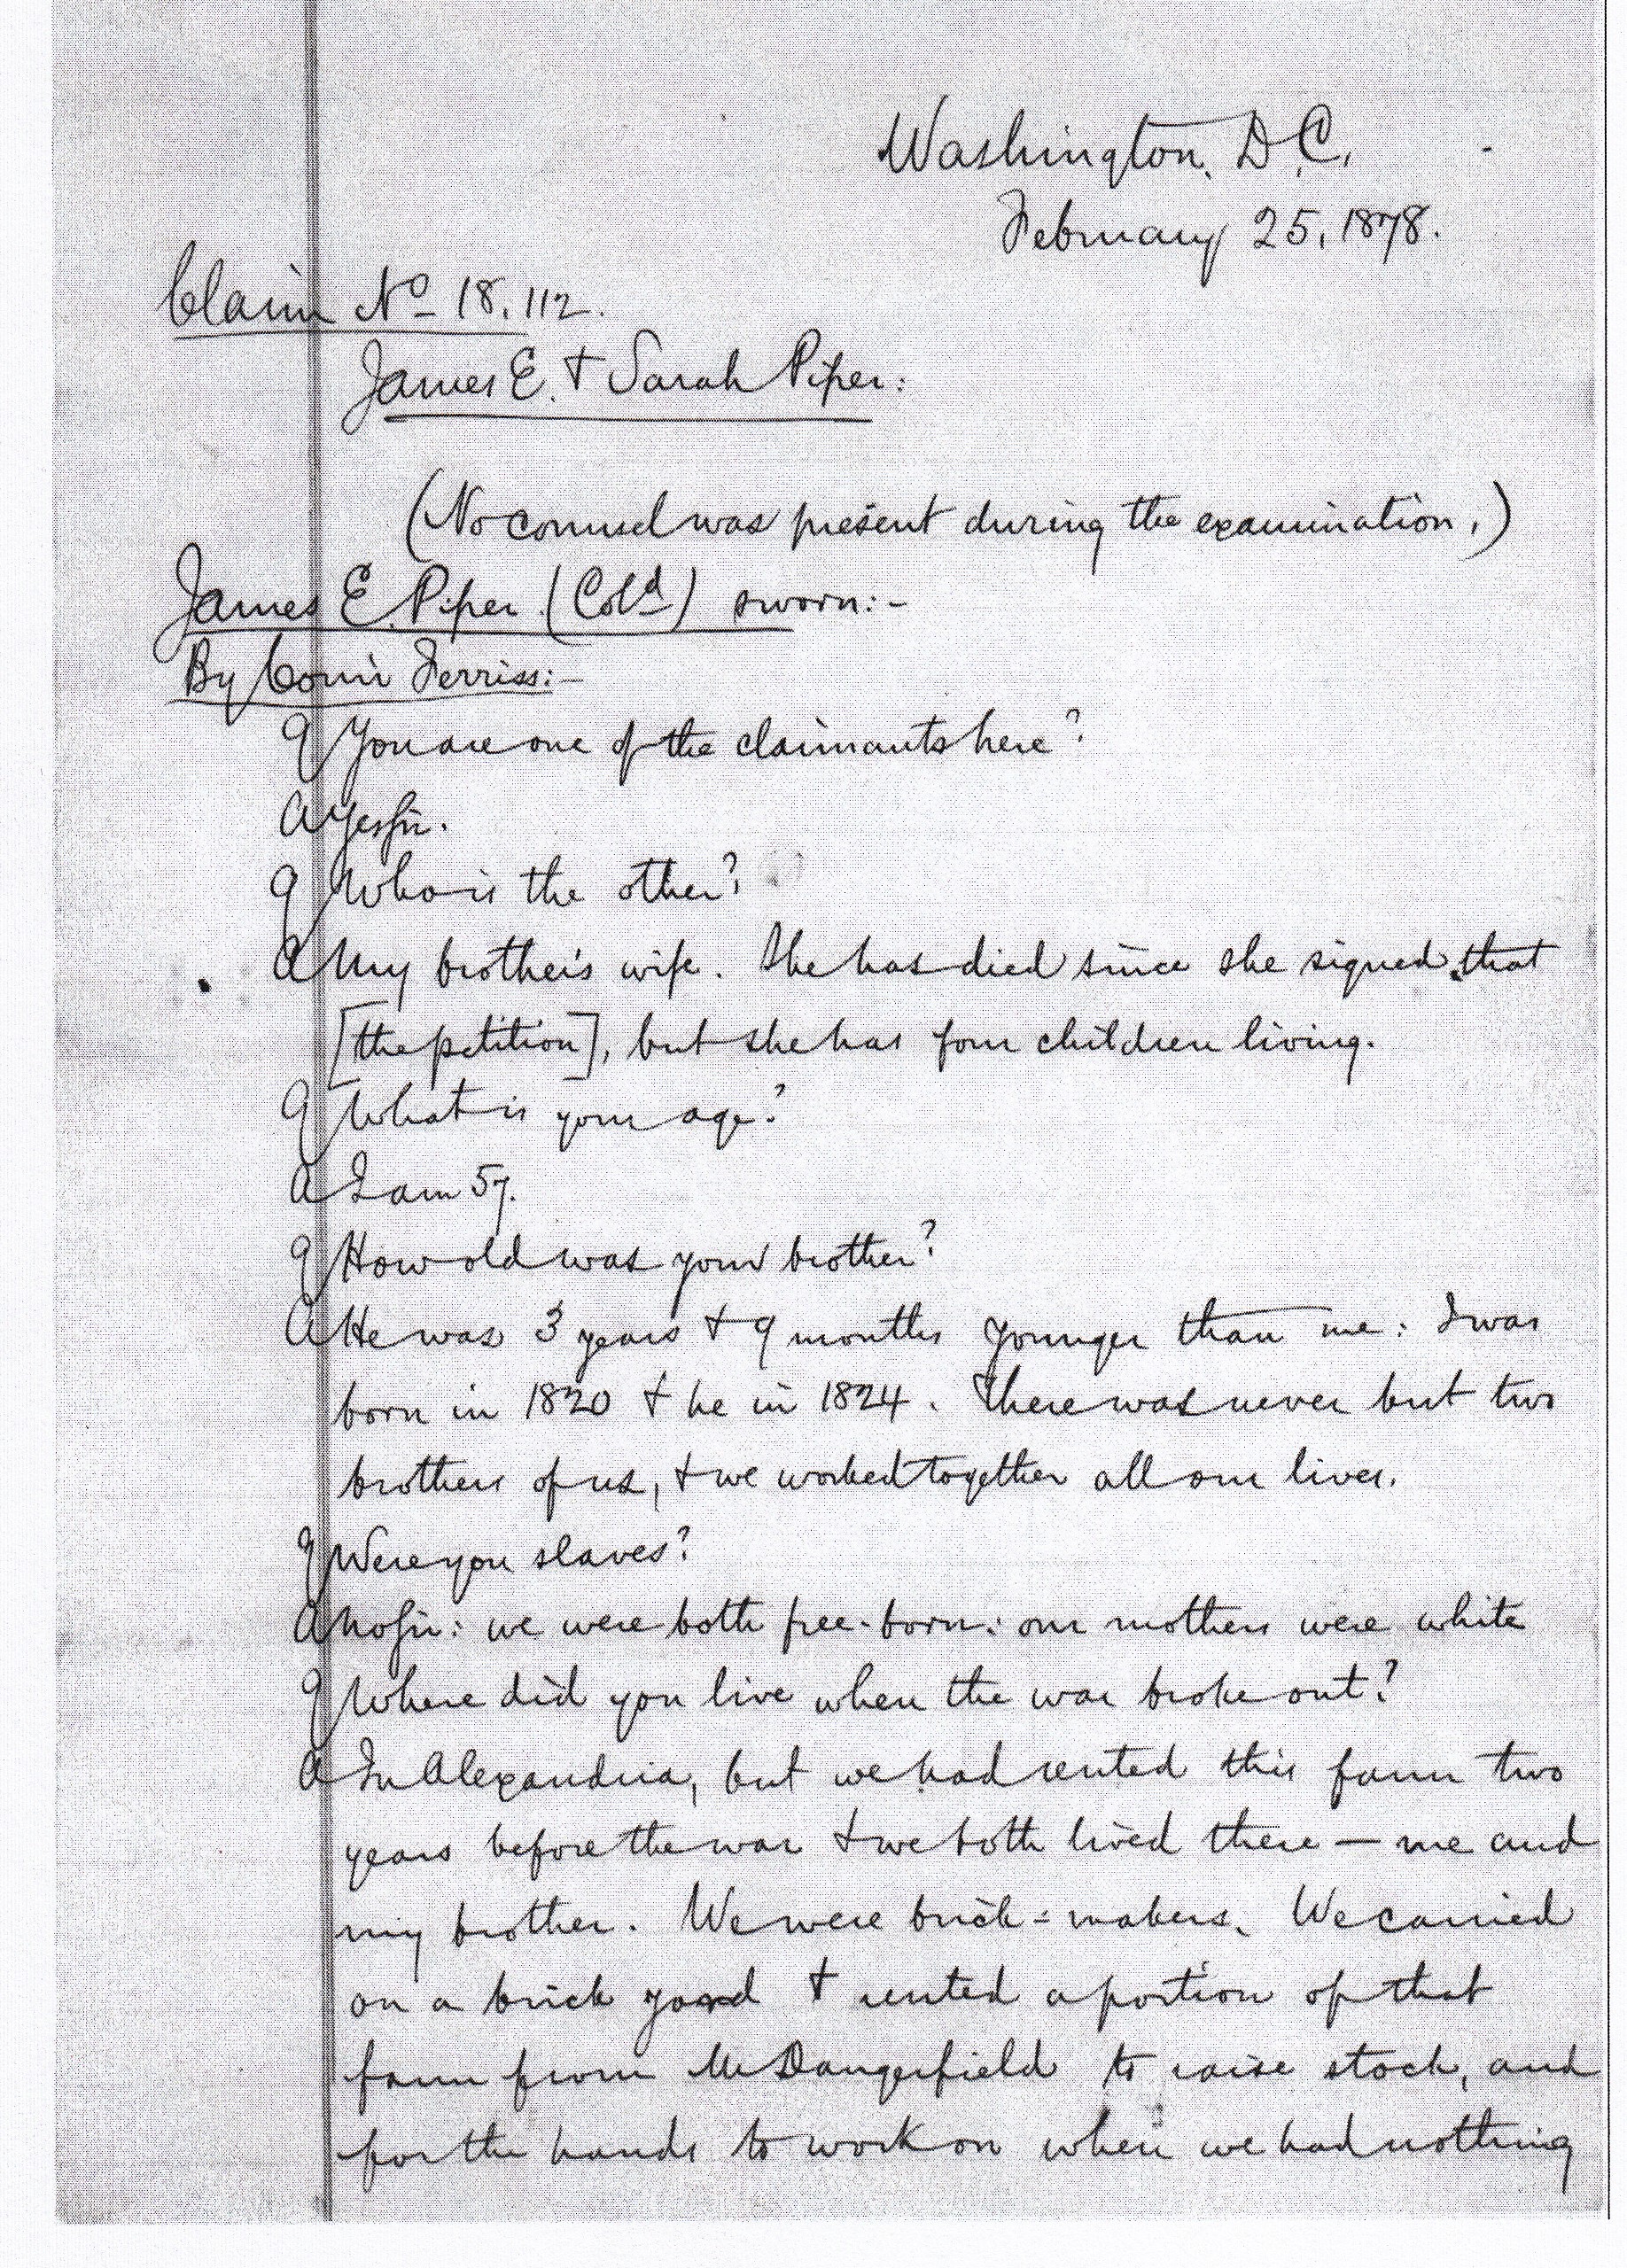 Washington, D.C.
February 25, 1878.
Claim No 18.112.
James E. + Sarah Piper:
(No counsel was present during the examination.)
James E. Piper (Cold) sworn:-
By Com'r Ferriss:-
Q You are one of the claimants here?
A Yes sir.
Q Who is the other?
A My brother's wife. She has died since she signed that
[the petition], but she has four children living.
Q What is your age?
A I am 57.
Q How old was your brother?
A He was 3 years + 9 months younger than me: I was
born in 1820 + he in 1824. There was never but two
brothers of us, + we worked together all our lives.
Q Were you slaves?
A No sir: we were both free-born: our mothers were white
Q Where did you live when the war broke out?
A In Alexandria, but we had rented this farm two
years before the war + we both lived there — me and
my brother. We were brick-makers. We carried
on a brick yard + rented a portion of that
farm from Mr Dangerfield to raise stock, and
for the hands to work on when we had nothing